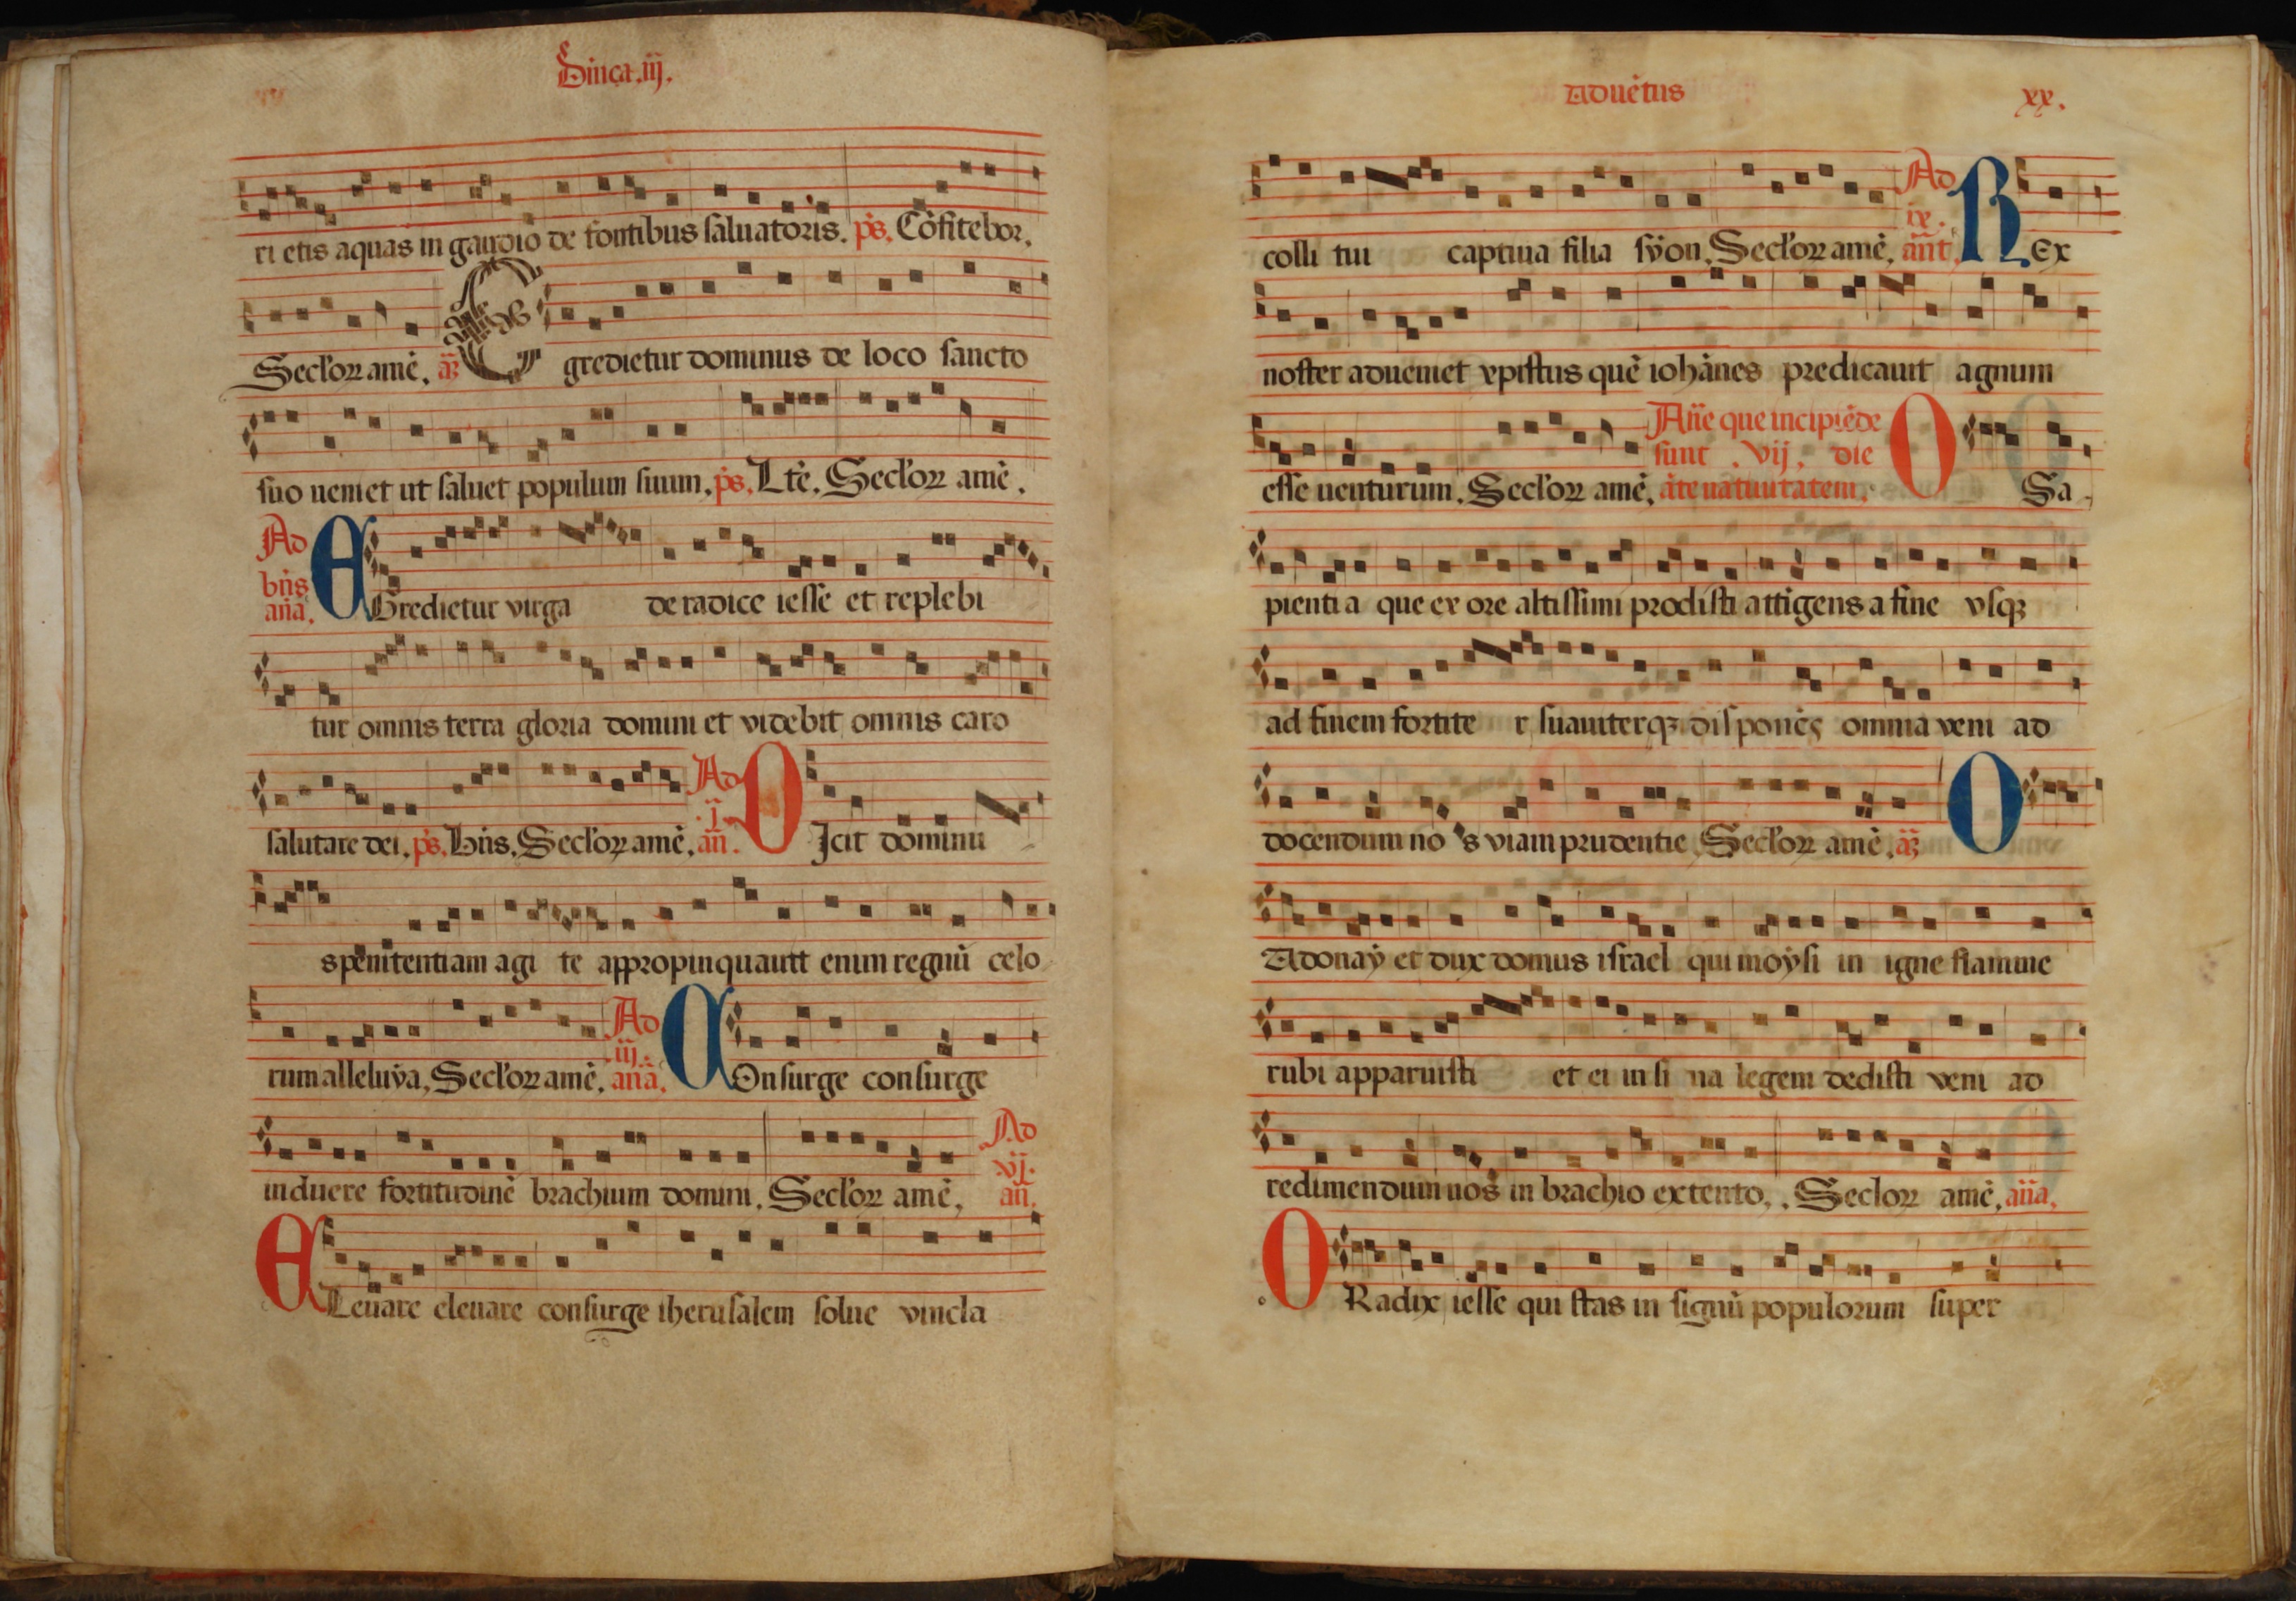 Dñica .iij.
rietis aquas in gaudio de fontibus saluatoris. ps̄. Cōfitebor.
Secl'oꝝ amē. añ Egredietur dominus de loco sancto
suo ueniet ut saluet populum suum. ps̄. Lt̄e. Secl'oꝝ amē.
Ad
bn̄s
añā. EGredietur virga de radice iesse et replebi
tur omnis terra gloria domini et videbit omnis caro
salutare dei. ps̄. bn̄s. Secl'oꝝ amē. Ad .i. añ. DIcit dominu
s penitentiam agite appropinquauit enim regnū celo
rum alleluya. Secl'oꝝ amē. Ad .iij. añā. COnsurge consurge
induere fortitudinē brachium domini. Secl'oꝝ amē. Ad .vj. añ.
ELeuare eleuare consurge iherusalem solue vincla
Aduētus
xx.
colli tui captiua filia syon. Secl'oꝝ amē. Ad .ix. añt. REx
noster adueniet xpistus quē iohānes predicauit agnum
esse uenturum. Secl'oꝝ amē. Añe que incipiēde
sunt .vij. die
āte natiuitatem. O Sa
pientia que ex ore altissimi prodisti attigens a fine vsqꝫ
ad finem fortiter suauiterqꝫ disponēs omnia veni ad
docendum nos viam prudentie Secl'oꝝ amē. añ O
Adonay et dux domus israel qui moysi in igne flamme
rubi apparuisti et ei in sina legem dedisti veni ad
redimendum nos in brachio extento. Secloꝝ amē. añā.
O Radix iesse qui stas in signū populorum super